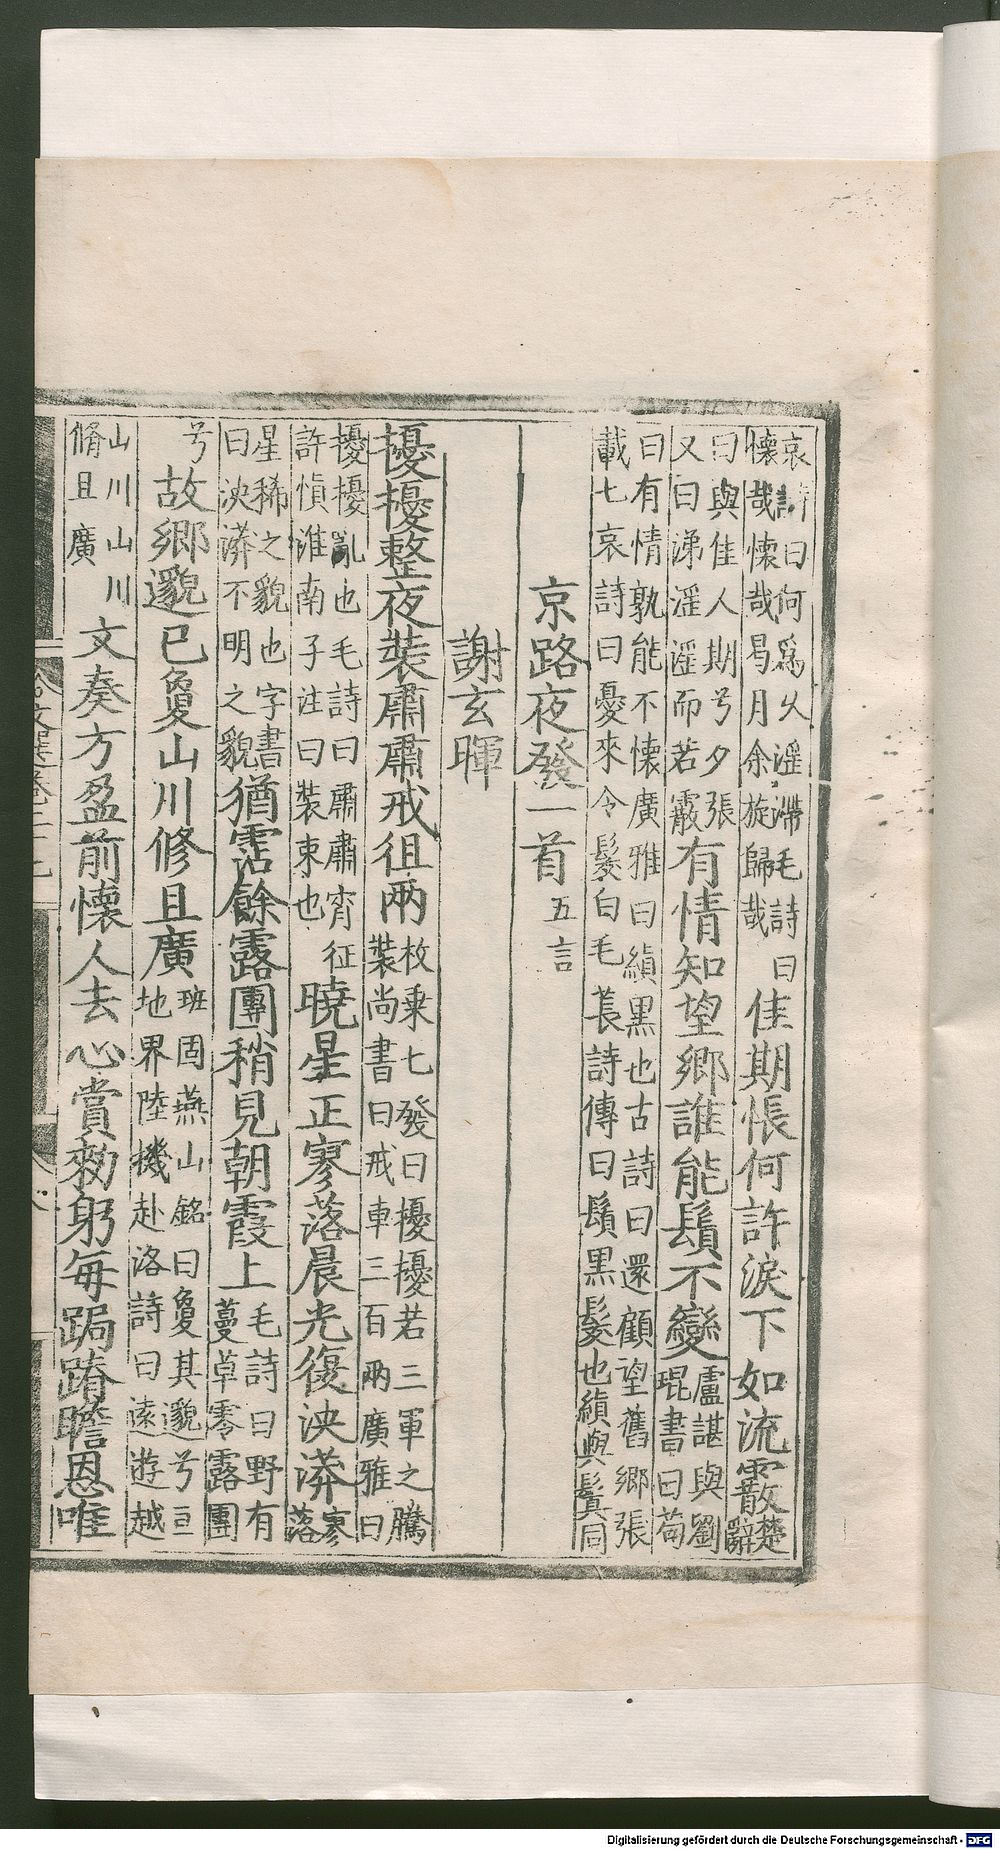 哀詩曰何爲久滛滯毛詩曰
懷哉懷哉曷月余旋歸哉
佳期悵何許淚下如流霰
楚
辭
曰與佳人期兮夕張
又曰涕滛滛而若霰
有情知望鄉誰能鬒不變
盧諶與劉
琨書曰苟
曰有情孰能不懷廣雅曰縝黑也古詩曰還顧望舊鄉張
載七哀詩曰憂來令髮白毛萇詩傳曰鬒黑髮也縝與鬒同
京路夜發一首
五言
謝玄暉
擾擾整夜裝肅肅戒徂兩
枚乗七發曰擾擾若三軍之騰
裝尚書曰戎車三百兩廣雅曰
擾擾亂也毛詩曰肅肅宵征
許慎淮南子注曰裝束也
曉星正寥落晨光復泱漭
寥
落
星稀之貌也字書
曰泱漭不明之貌
猶霑餘露團稍見朝霞上
毛詩曰野有
蔓草零露團
兮
故鄉邈已敻山川修且廣
班固燕山銘曰敻其邈兮亘
地界陸機赴洛詩曰遠遊越
山川山川
脩且廣
文奏方盈前懷人去心賞敕躬每跼蹐瞻恩唯
Digitalisierung gefördert durch die Deutsche Forschungsgemeinschaft - DFG